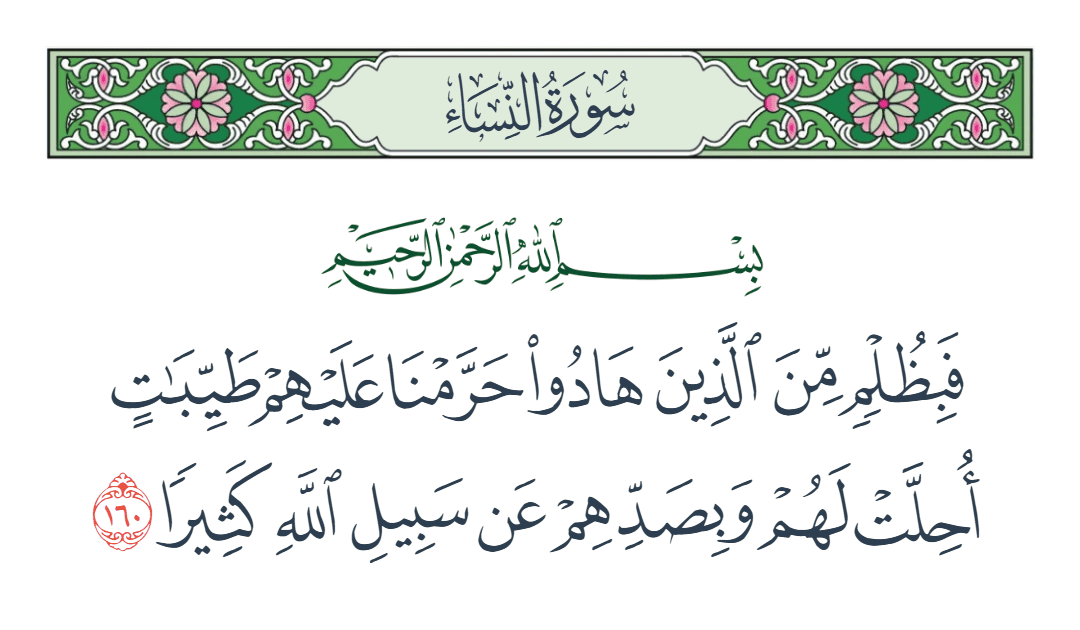 سُورَةُ النِّسَاءِ
بِسْمِ ٱللَّهِ ٱلرَّحْمَٰنِ ٱلرَّحِيمِ
فَبِظُلْمٍ مِّنَ ٱلَّذِينَ هَادُوا۟ حَرَّمْنَا عَلَيْهِمْ طَيِّبَٰتٍ
أُحِلَّتْ لَهُمْ وَبِصَدِّهِمْ عَن سَبِيلِ ٱللَّهِ كَثِيرًا ١٦٠